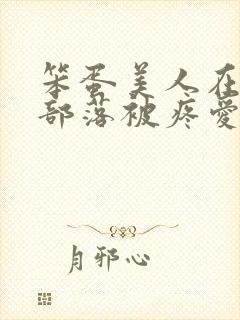 笨蛋美人在
部落被疼愛
月邪心